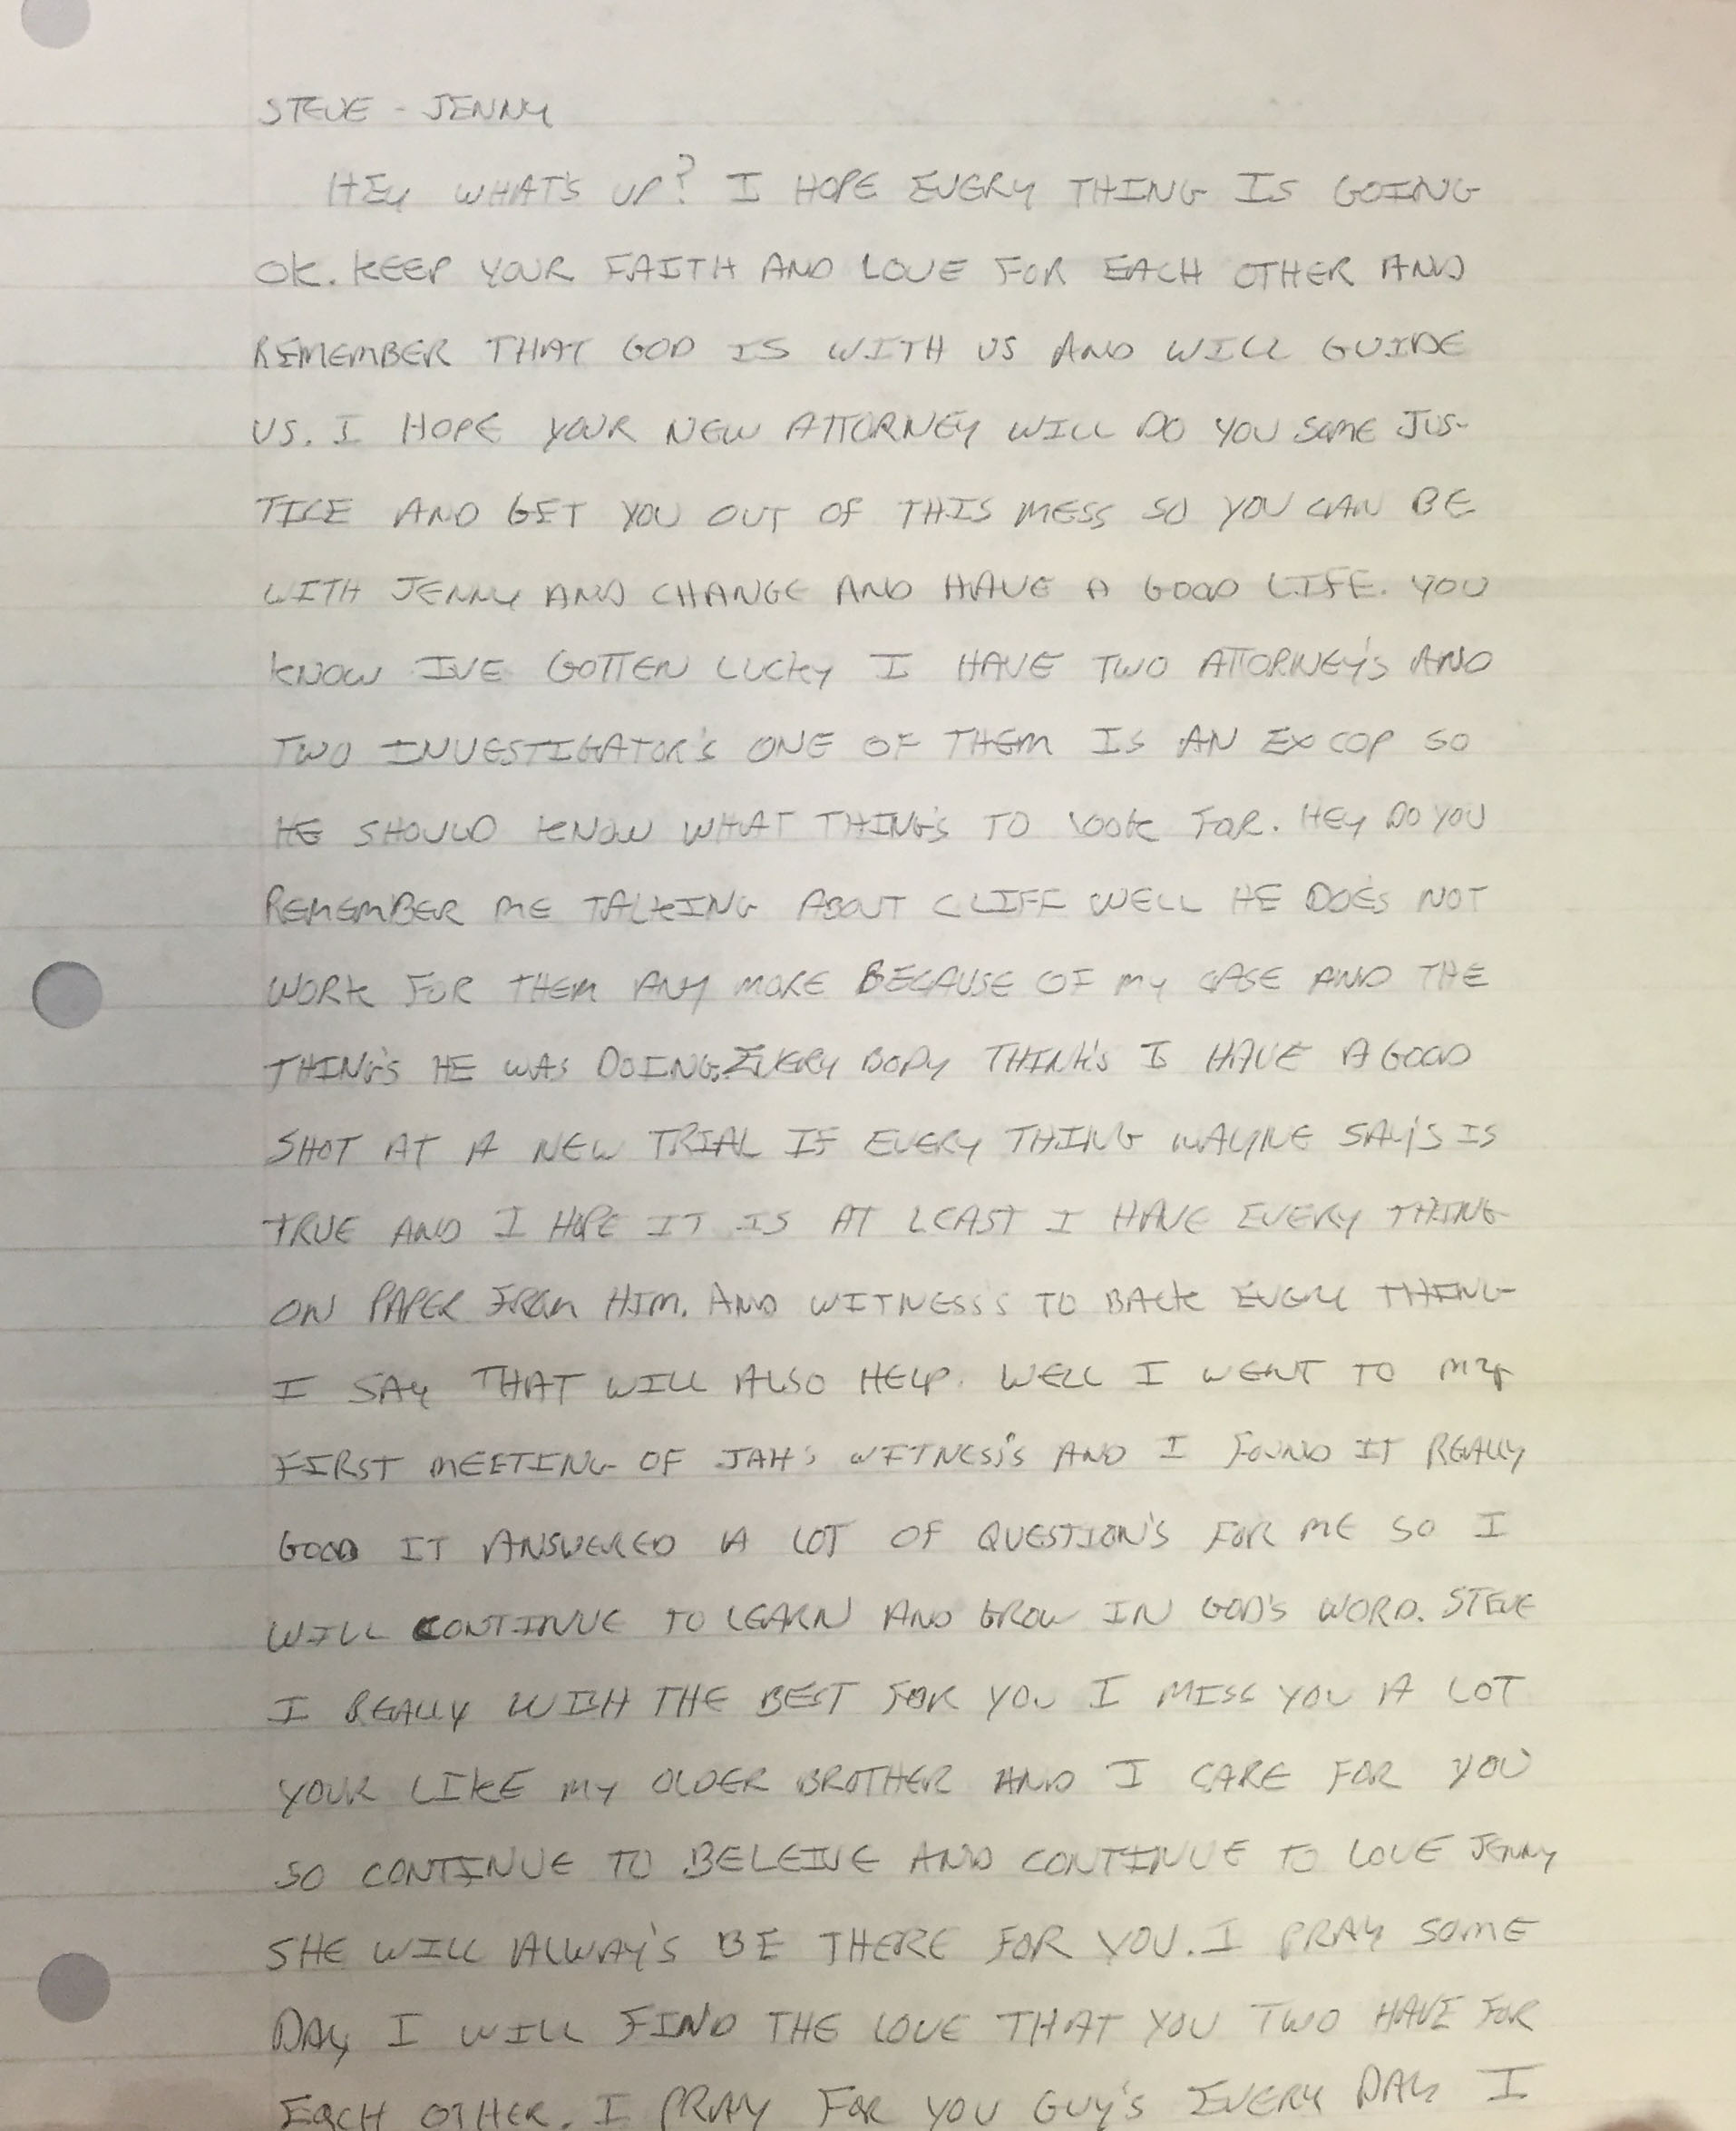 STEVE - JENNY
HEY WHAT'S UP? I HOPE EVERY THING IS GOING
OK. KEEP YOUR FAITH AND LOVE FOR EACH OTHER AND
REMEMBER THAT GOD IS WITH US AND WILL GUIDE
US. I HOPE YOUR NEW ATTORNEY WILL DO YOU SOME JUS-
TICE AND GET YOU OUT OF THIS MESS SO YOU CAN BE
WITH JENNY AND CHANGE AND HAVE A GOOD LIFE. YOU
KNOW IVE GOTTEN LUCKY I HAVE TWO ATTORNEY'S AND
TWO INVESTIGATOR'S ONE OF THEM IS AN EX COP SO
HE SHOULD KNOW WHAT THING'S TO LOOK FOR. HEY DO YOU
REMEMBER ME TALKING ABOUT CLIFF WELL HE DOE'S NOT
WORK FOR THEM ANY MORE BECAUSE OF MY CASE AND THE
THING'S HE WAS DOING. EVERY BODY THINK'S I HAVE A GOOD
SHOT AT A NEW TRIAL IF EVERY THING WAYNE SAY'S IS
TRUE AND I HOPE IT IS AT LEAST I HAVE EVERY THING
ON PAPER FROM HIM. AND WITNESS'S TO BACK EVERY THING
I SAY THAT WILL ALSO HELP. WELL I WENT TO MY
FIRST MEETING OF JAH'S WITNESS'S AND I FOUND IT REALLY
GOOD IT ANSWERED A LOT OF QUESTION'S FOR ME SO I
WILL CONTINUE TO LEARN AND GROW IN GOD'S WORD. STEVE
I REALLY WISH THE BEST FOR YOU I MISS YOU A LOT
YOUR LIKE MY OLDER BROTHER AND I CARE FOR YOU
SO CONTINUE TO BELEIVE AND CONTINUE TO LOVE JENNY
SHE WILL ALWAY'S BE THERE FOR YOU. I PRAY SOME
DAY I WILL FIND THE LOVE THAT YOU TWO HAVE FOR
EACH OTHER. I PRAY FOR YOU GUY'S EVERY DAY I